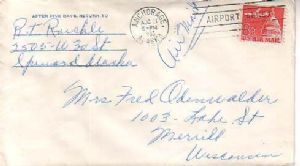 AFTER FIVE DAYS, RETURN TO
R T Kuehle
2505-W 30 St
Spenard Alaska
ANCHORAGE
AIRPORT
Air Mail
U.S. AIR MAIL
Mrs Fred Odenwalder
1003- Lake St
Merrill
Wisconsin